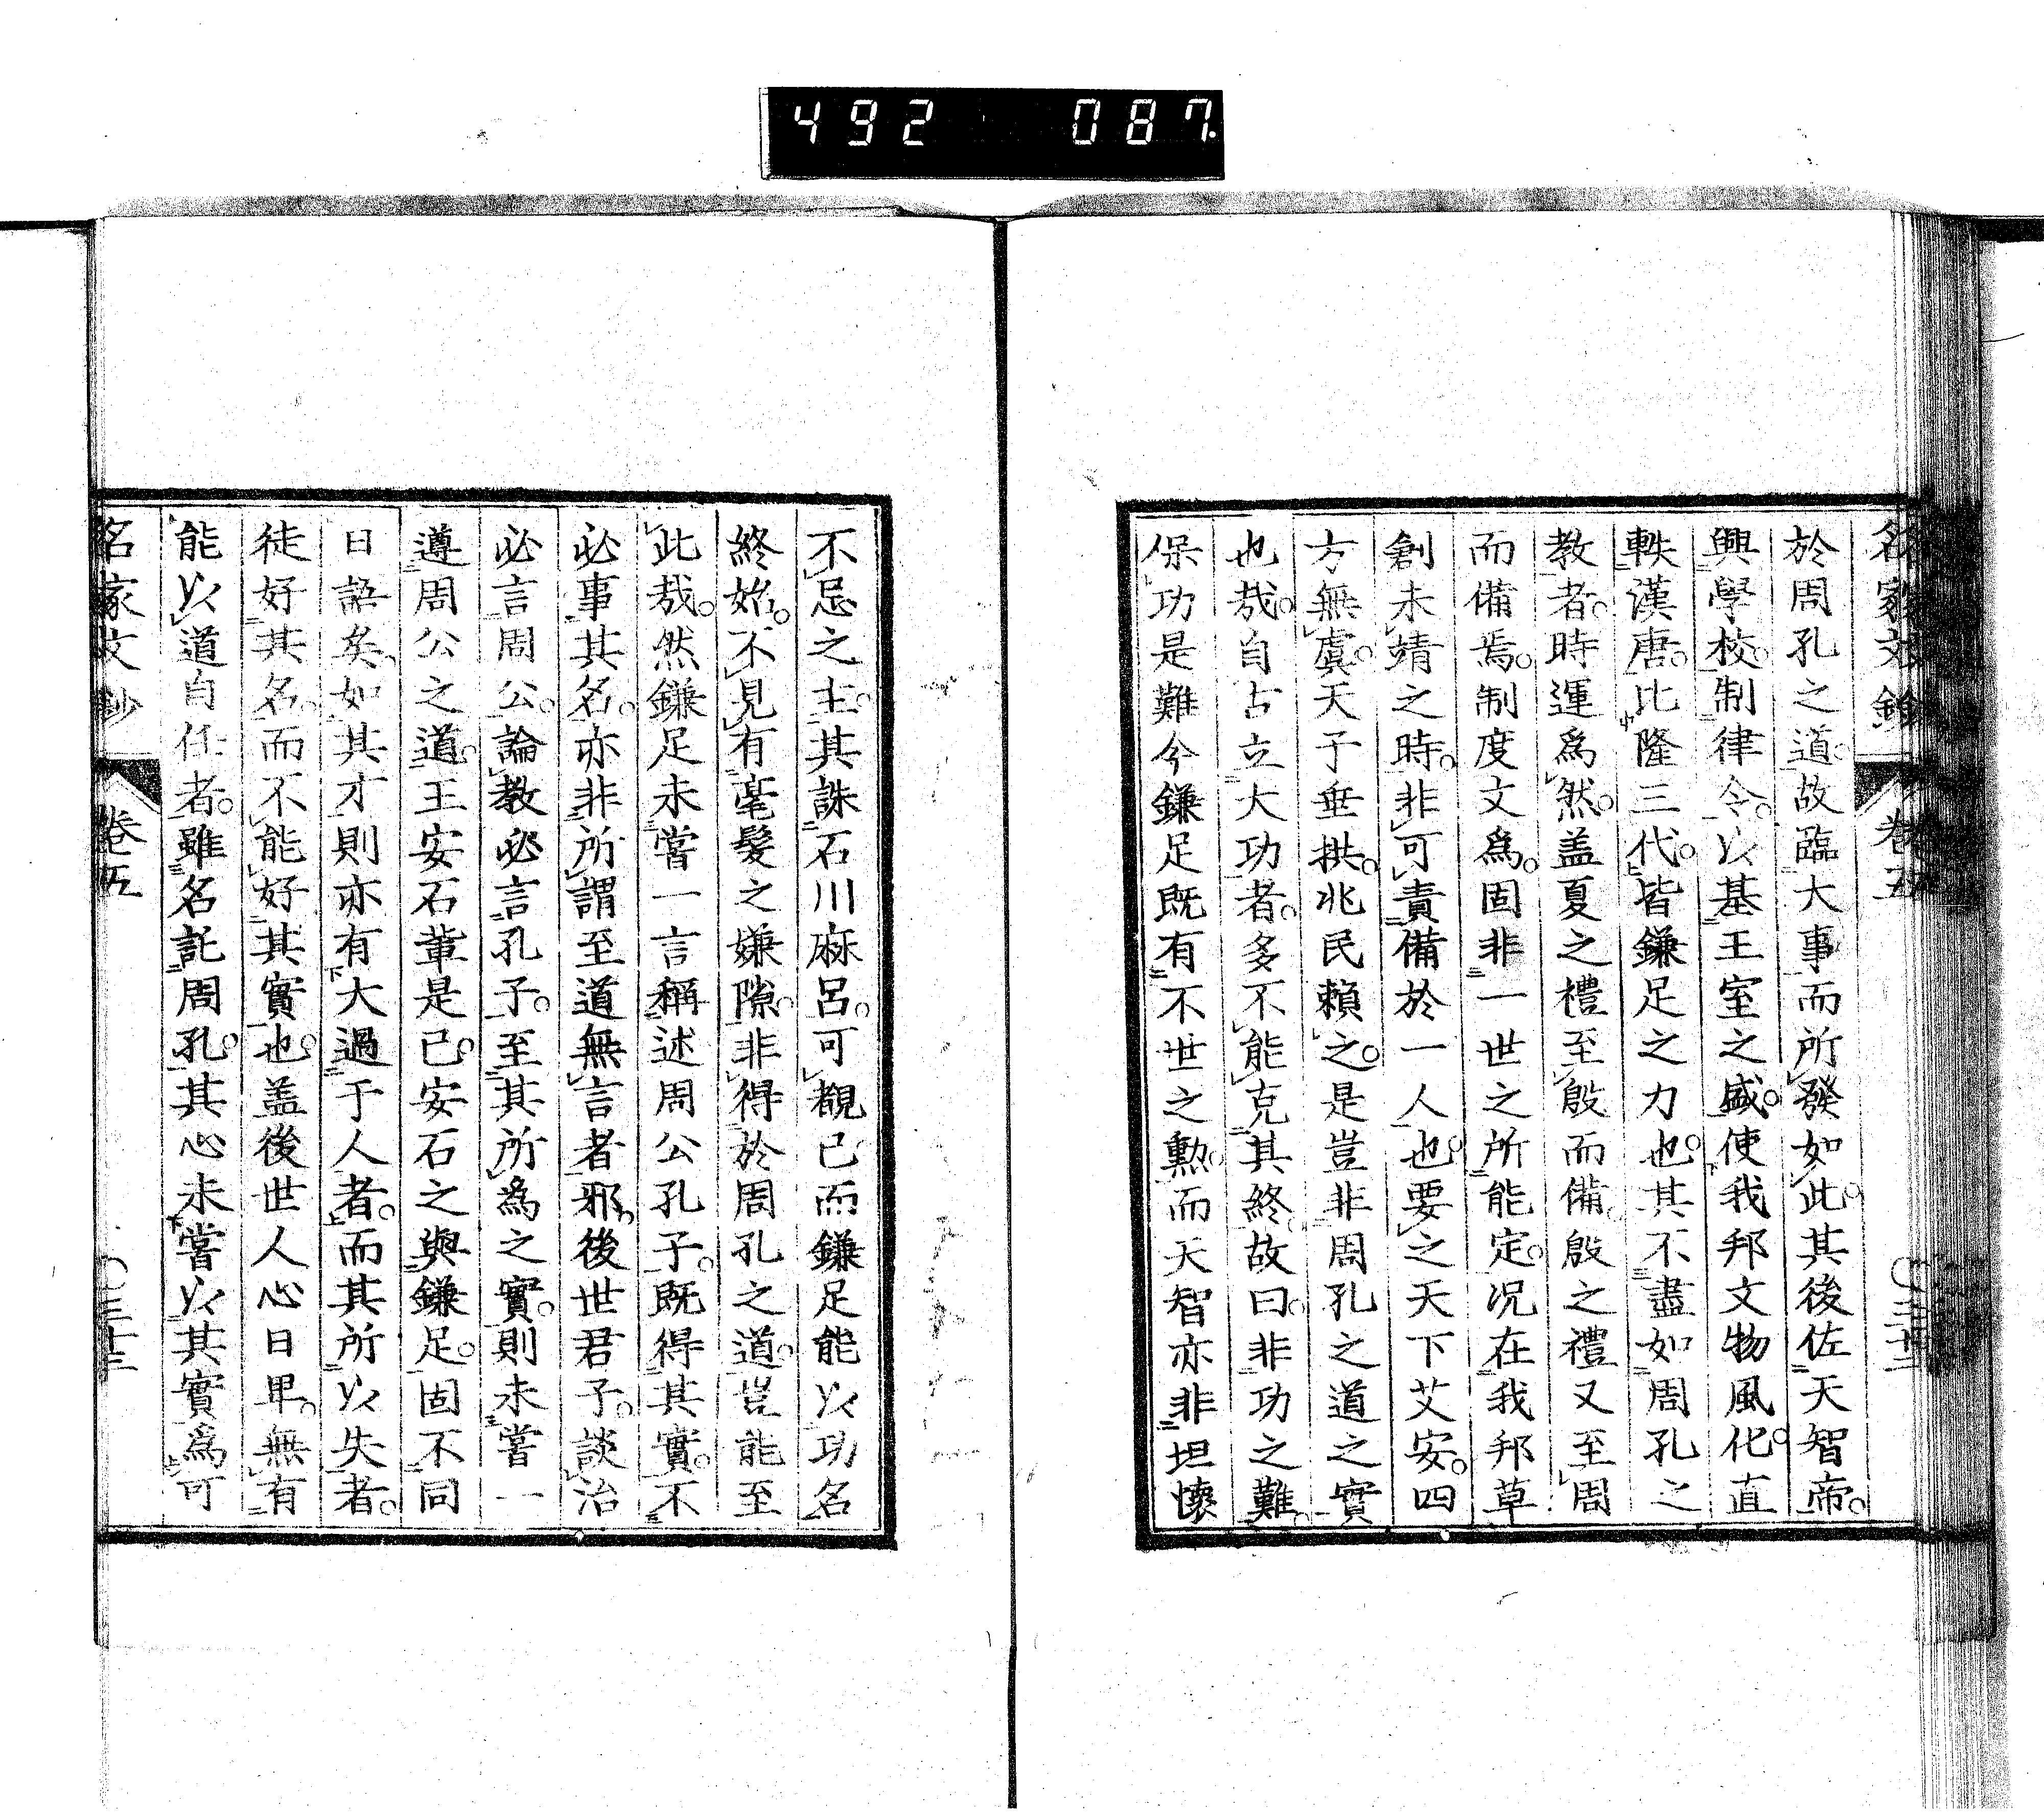 492 087
名家文鈔 卷五
於周孔之道。故臨大事而所發如此。其後佐天智帝。
興學校。制律令。以基王室之盛。使我邦文物風化。直
軼漢唐。比隆三代。皆鎌足之力也。其不盡如周孔之
教者。時運爲然。盖夏之禮至殷而備。殷之禮又至周
而備焉。制度文爲。固非一世之所能定。况在我邦草
創未靖之時。非可責備於一人也。要之天下艾安。四
方無虞。天子垂拱。兆民賴之。是豈非周孔之道之實
也哉。自古立大功者。多不能克其終。故曰。非功之難。
保功是難。今鎌足既有不世之勲。而天智亦非坦懷
不忌之主。其誅石川麻呂。可觀已。而鎌足能以功名
終始。不見有毫髮之嫌隙。非得於周孔之道。豈能至
此哉。然鎌足未嘗一言稱述周公孔子。既得其實。不
必事其名。亦非所謂至道無言者邪。後世君子。談治
必言周公。論教必言孔子。至其所爲之實。則未嘗一
遵周公之道。王安石輩是已。安石之與鎌足。固不同
日語矣。如其才則亦有大過于人者。而其所以失者。
徒好其名。而不能好其實也。盖後世人心日卑。無有
能以道自任者。雖名託周孔。其心未嘗以其實爲可
名家文鈔 卷五 〇三十三